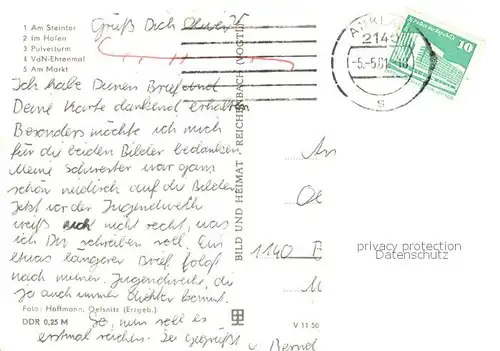 1 Am Steintor
2 Im Hafen
3 Pulverturm
4 VdN-Ehrenmal
5 Am Markt
Grüß Dich
Ich habe Deinen Brief und
Deine Karte dankend erhalten
Besonders möchte ich mich
für die beiden Bilder bedanken.
Meine Schwester war ganz
schön neidisch auf die Bilder.
Jetzt vor der Jugendweihe
weiß ich nicht recht, was
ich Dir schreiben soll. Ein
etwas längerer Brief folgt
nach meiner Jugendweihe, die
ja auch immer dichter kommt.
Foto: Hoffmann, Oelsnitz (Erzgeb.)
DDR 0,25 M
So, nun soll es
erstmal reichen. Sei gegrüßt
v. Bernd
BILD UND HEIMAT REICHENBACH (VOGTL)
V 11 50
2140
-5.-5.81.-18
s
10
An
1140 B
M
privacy protection
AnsichtskartenVersand.com